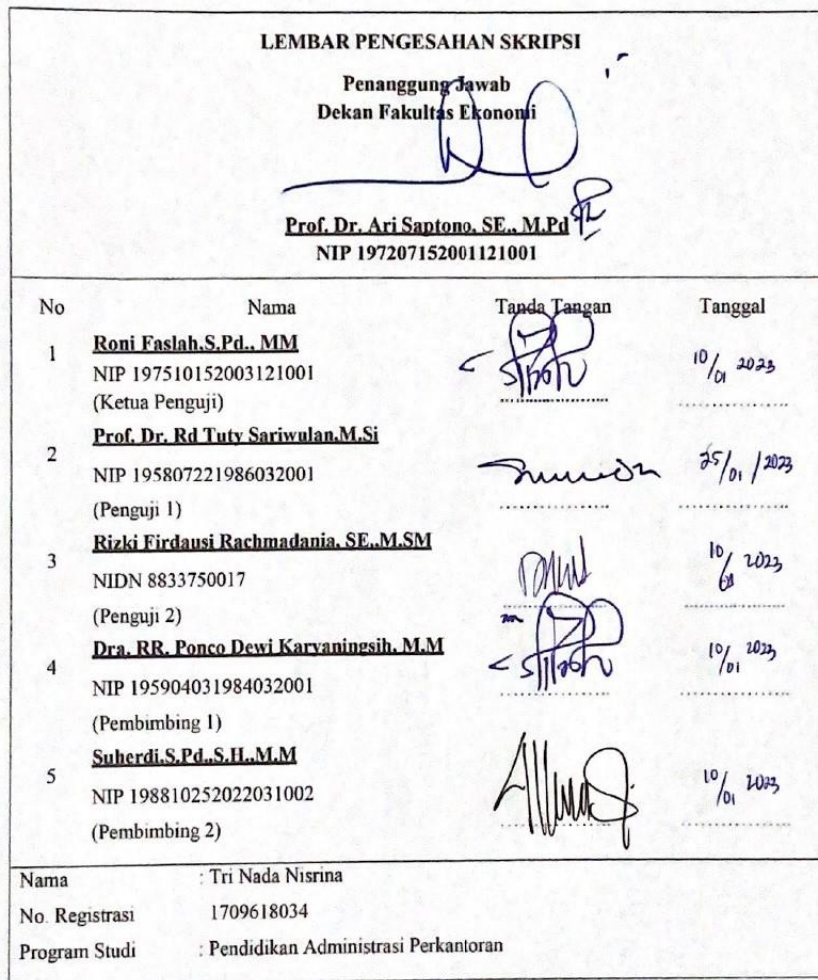 LEMBAR PENGESAHAN SKRIPSI
Penanggung Jawab
Dekan Fakultas Ekonomi
Prof. Dr. Ari Saptono, SE., M.Pd
NIP 197207152001121001
No Nama Tanda Tangan Tanggal
1 Roni Faslah,S.Pd., MM
NIP 197510152003121001 10/01 2023
(Ketua Penguji)
2 Prof. Dr. Rd Tuty Sariwulan,M.Si
NIP 195807221986032001 25/01/2023
(Penguji 1)
3 Rizki Firdausi Rachmadania, SE.,M.SM
NIDN 8833750017 10/ 2023
(Penguji 2)
4 Dra. RR. Ponco Dewi Karyaningsih, M.M
NIP 195904031984032001 10/01 2023
(Pembimbing 1)
5 Suherdi,S.Pd.,S.H.,M.M
NIP 198810252022031002 10/01 2023
(Pembimbing 2)
Nama : Tri Nada Nisrina
No. Registrasi 1709618034
Program Studi : Pendidikan Administrasi Perkantoran